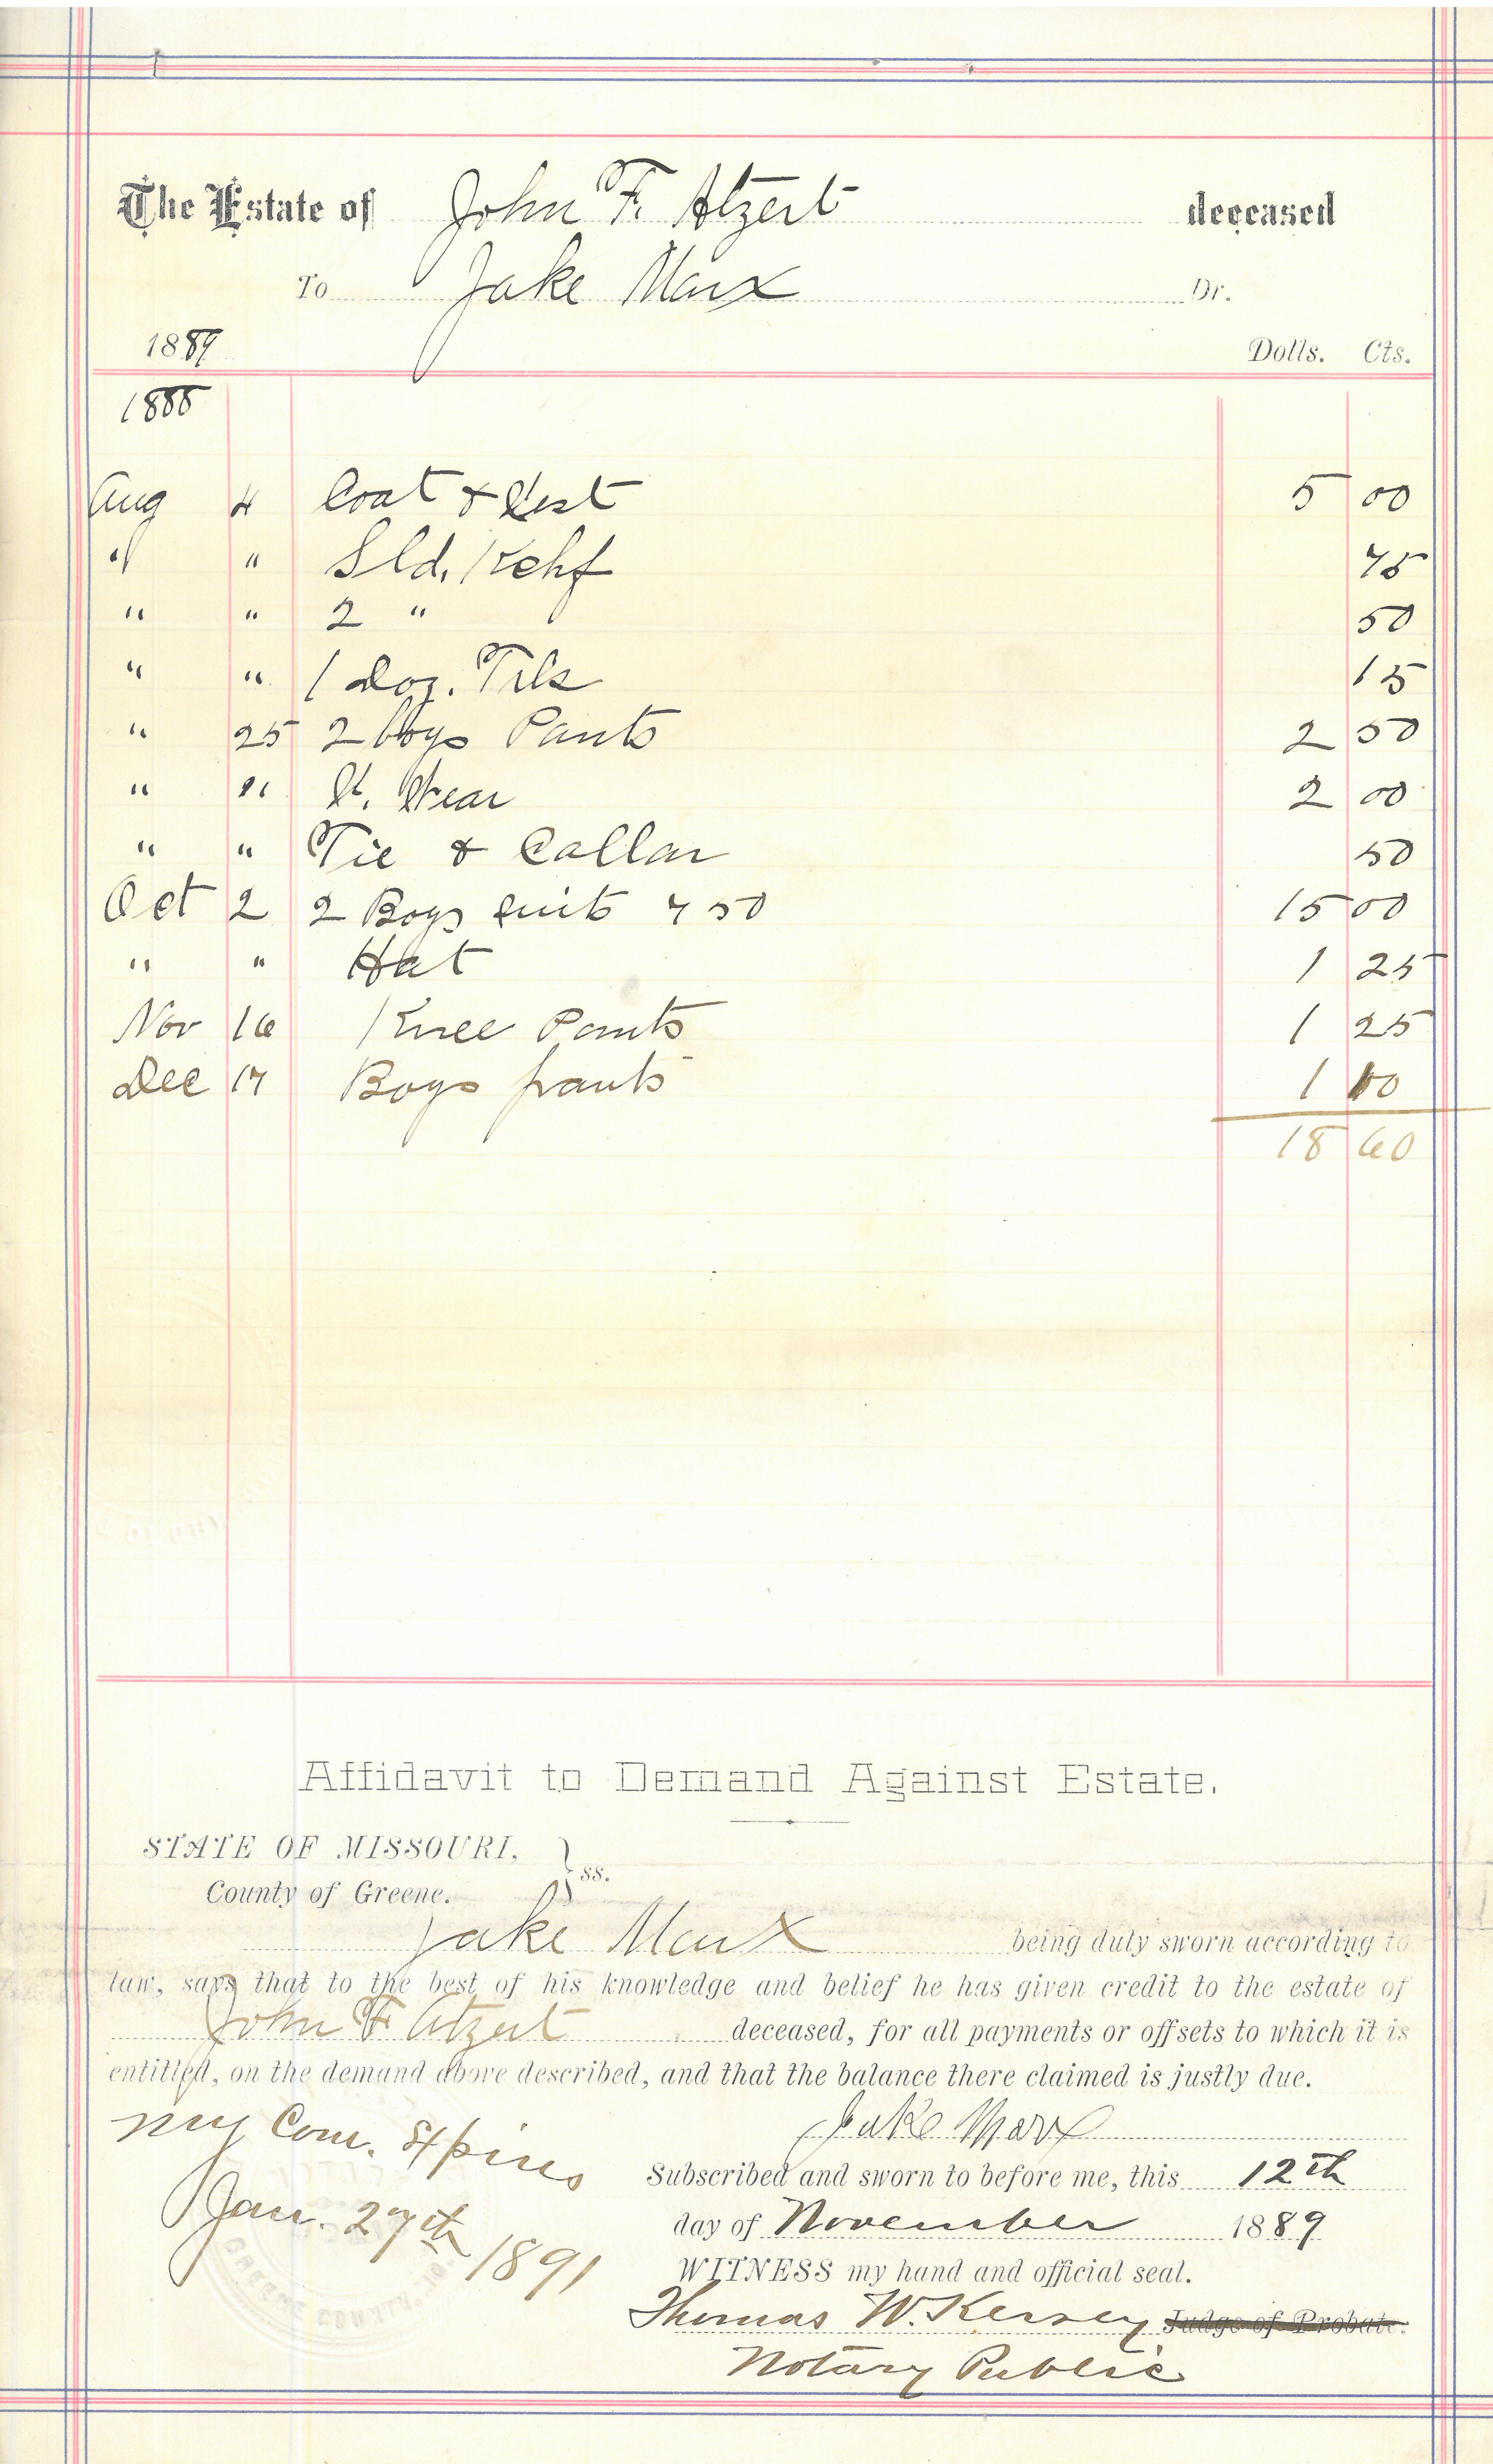 The Estate of John F. Atzert deceased
To Jake Marx Dr.
1889 Dolls. Cts.
1888
Aug 4 Coat & Vest 5 00
" " Sld. Kchf 75
" " 2 " 50
" " 1 Doz. 15
" 25 2 boys Pants 2 50
" " Wear 2 00
" " Tie & Collar 50
Oct 2 2 Boys suits 7 50 15 00
" " Hat 1 25
Nov 16 Knee Pants 1 25
Dec 17 Boys pants 1 00
18 60
Affidavit to Demand Against Estate.
STATE OF MISSOURI, } ss.
County of Greene.
Jake Marx being duly sworn according to
law, says that to the best of his knowledge and belief he has given credit to the estate of
John F Atzert deceased, for all payments or offsets to which it is
entitled, on the demand above described, and that the balance there claimed is justly due.
Jake Marx
My Com. Expires
Jan. 27th 1891
Subscribed and sworn to before me, this 12th
day of November 1889
WITNESS my hand and official seal.
Thomas W. Kersey Judge of Probate.
Notary Public